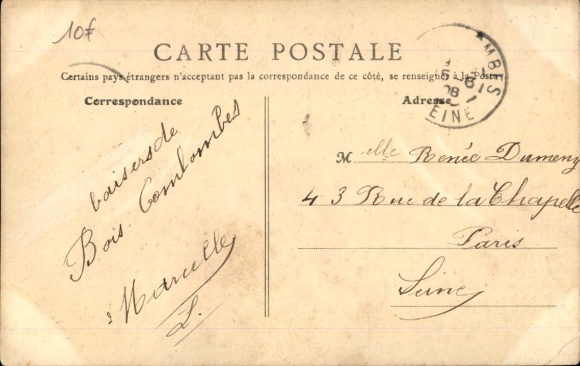 10f
CARTE POSTALE
Certains pays étrangers n'acceptant pas la correspondance de ce côté, se renseigner à la Poste
Correspondance
Adresse
baisers de
Bois-Colombes
Marcelle
L.
M elle Renée Dumeny
43 Rue de la Chapelle
Paris
Seine
BIS
6
08
EINE